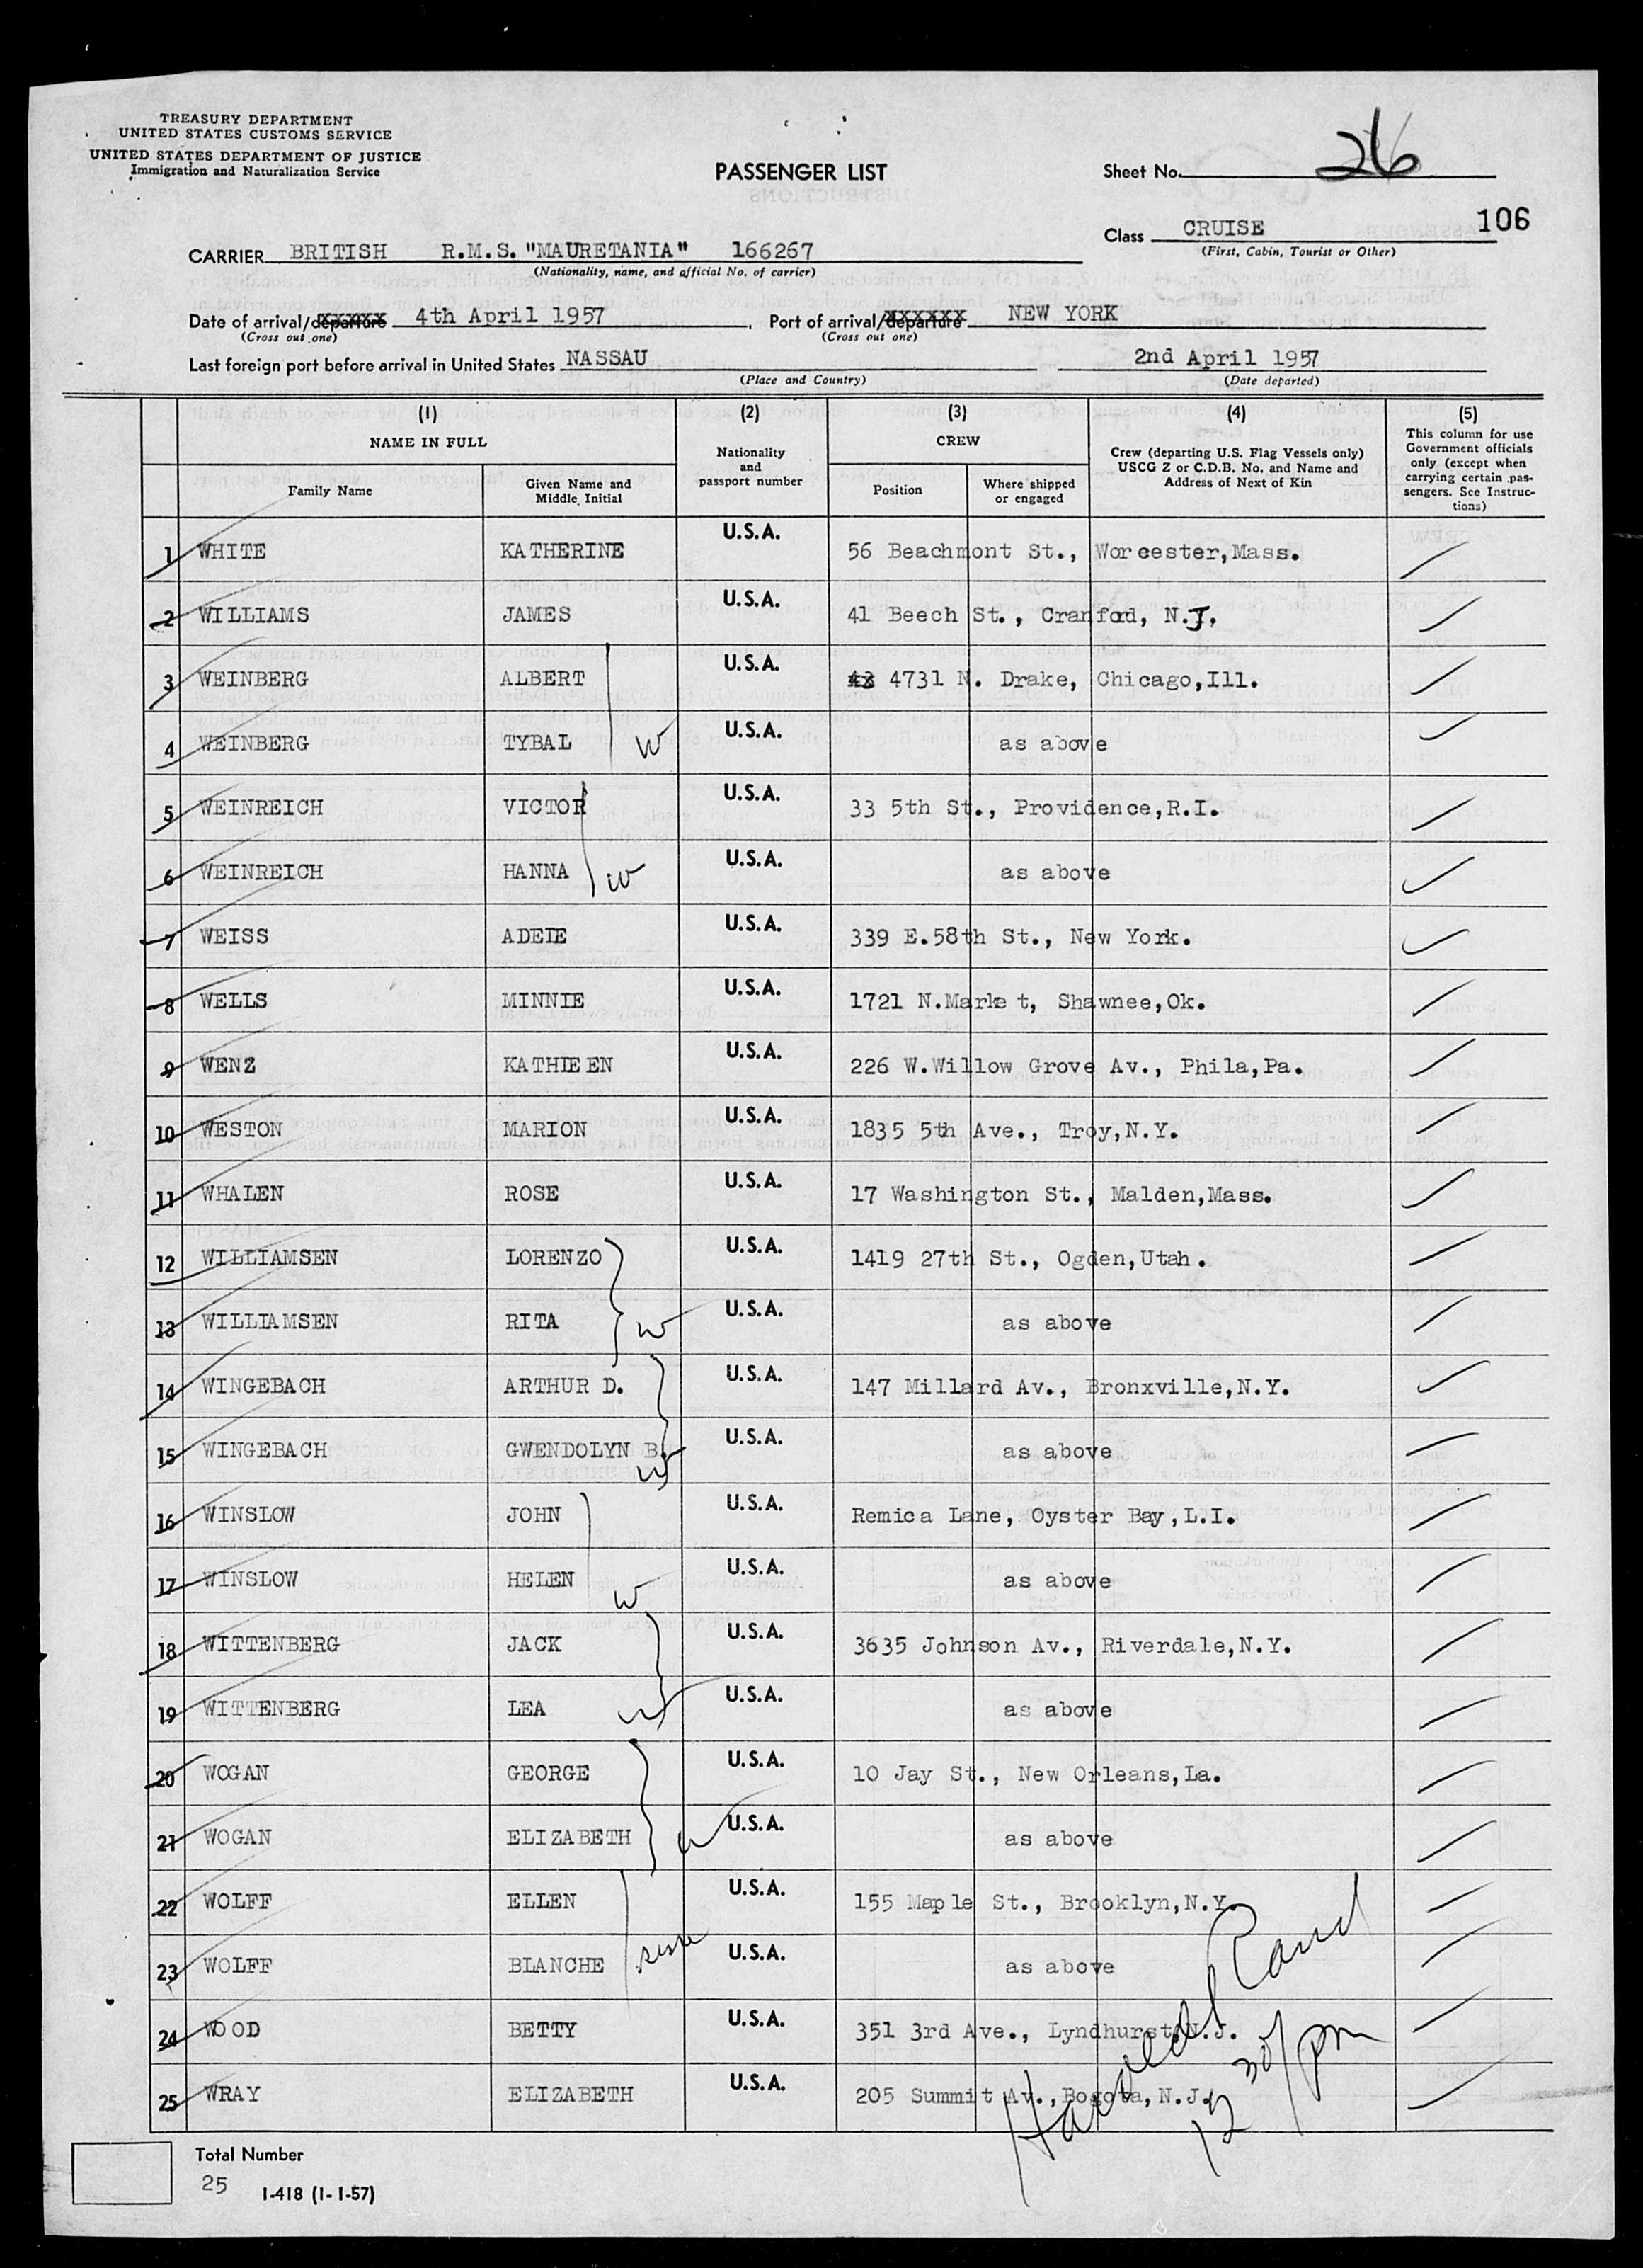 TREASURY DEPARTMENT
UNITED STATES CUSTOMS SERVICE
UNITED STATES DEPARTMENT OF JUSTICE
Immigration and Naturalization Service
PASSENGER LIST
Sheet No. 26
Class CRUISE 106
(First, Cabin, Tourist or Other)
CARRIER BRITISH R.M.S. "MAURETANIA" 166267
(Nationality, name, and official No. of carrier)
Date of arrival/departure 4th April 1957, Port of arrival/departure NEW YORK
(Cross out one) (Cross out one)
Last foreign port before arrival in United States NASSAU 2nd April 1957
(Place and Country) (Date departed)
(1) (2) (3) (4) (5)
NAME IN FULL
Family Name
Given Name and Middle Initial
Nationality and passport number
CREW
Position
Where shipped or engaged
Crew (departing U.S. Flag Vessels only)
USCG Z or C.D.B. No. and Name and
Address of Next of Kin
This column for use
Government officials
only (except when
carrying certain pas-
sengers. See Instruc-
tions)
1 WHITE KATHERINE U.S.A. 56 Beachmont St., Worcester,Mass.
2 WILLIAMS JAMES U.S.A. 41 Beech St., Cranford, N.J.
3 WEINBERG ALBERT U.S.A. 4731 N. Drake, Chicago,Ill.
4 WEINBERG TYBAL W U.S.A. as above
5 WEINREICH VICTOR U.S.A. 33 5th St., Providence,R.I.
6 WEINREICH HANNA W U.S.A. as above
7 WEISS ADELE U.S.A. 339 E.58th St., New York.
8 WELLS MINNIE U.S.A. 1721 N.Market, Shawnee,Ok.
9 WENZ KATHLEEN U.S.A. 226 W.Willow Grove Av., Phila,Pa.
10 WESTON MARION U.S.A. 1835 5th Ave., Troy,N.Y.
11 WHALEN ROSE U.S.A. 17 Washington St., Malden,Mass.
12 WILLIAMSEN LORENZO U.S.A. 1419 27th St., Ogden,Utah.
13 WILLIAMSEN RITA W U.S.A. as above
14 WINGEBACH ARTHUR D. U.S.A. 147 Millard Av., Bronxville,N.Y.
15 WINGEBACH GWENDOLYN B. W U.S.A. as above
16 WINSLOW JOHN U.S.A. Remica Lane, Oyster Bay,L.I.
17 WINSLOW HELEN W U.S.A. as above
18 WITTENBERG JACK U.S.A. 3635 Johnson Av., Riverdale,N.Y.
19 WITTENBERG LEA W U.S.A. as above
20 WOGAN GEORGE U.S.A. 10 Jay St., New Orleans,La.
21 WOGAN ELIZABETH W U.S.A. as above
22 WOLFF ELLEN U.S.A. 155 Maple St., Brooklyn,N.Y.
23 WOLFF BLANCHE U.S.A. as above
24 WOOD BETTY U.S.A. 351 3rd Ave., Lyndhurst,N.J.
25 WRAY ELIZABETH U.S.A. 205 Summit Av.,Bogota,N.J.
12 30/pm
Total Number
25 I-418 (1-1-57)